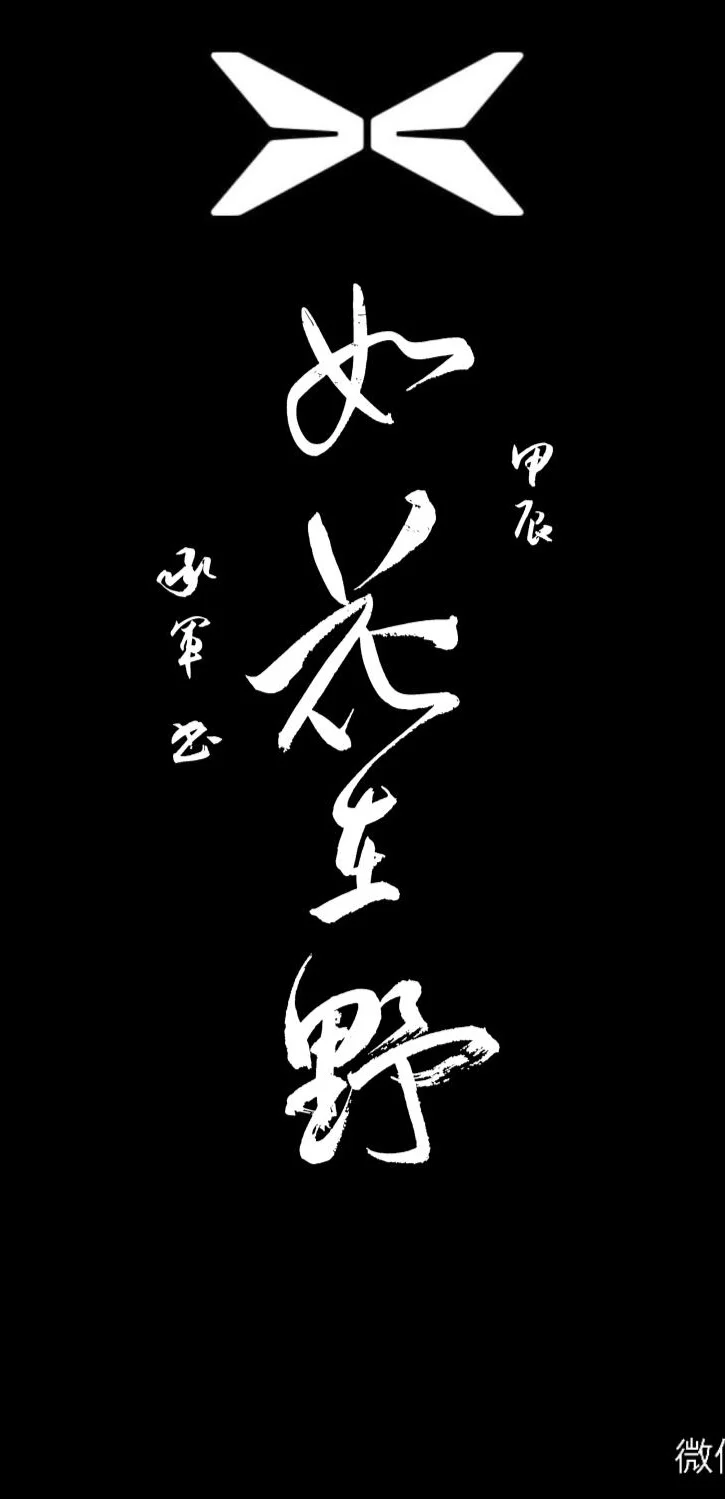 如花在野
甲辰
承軍书
微信